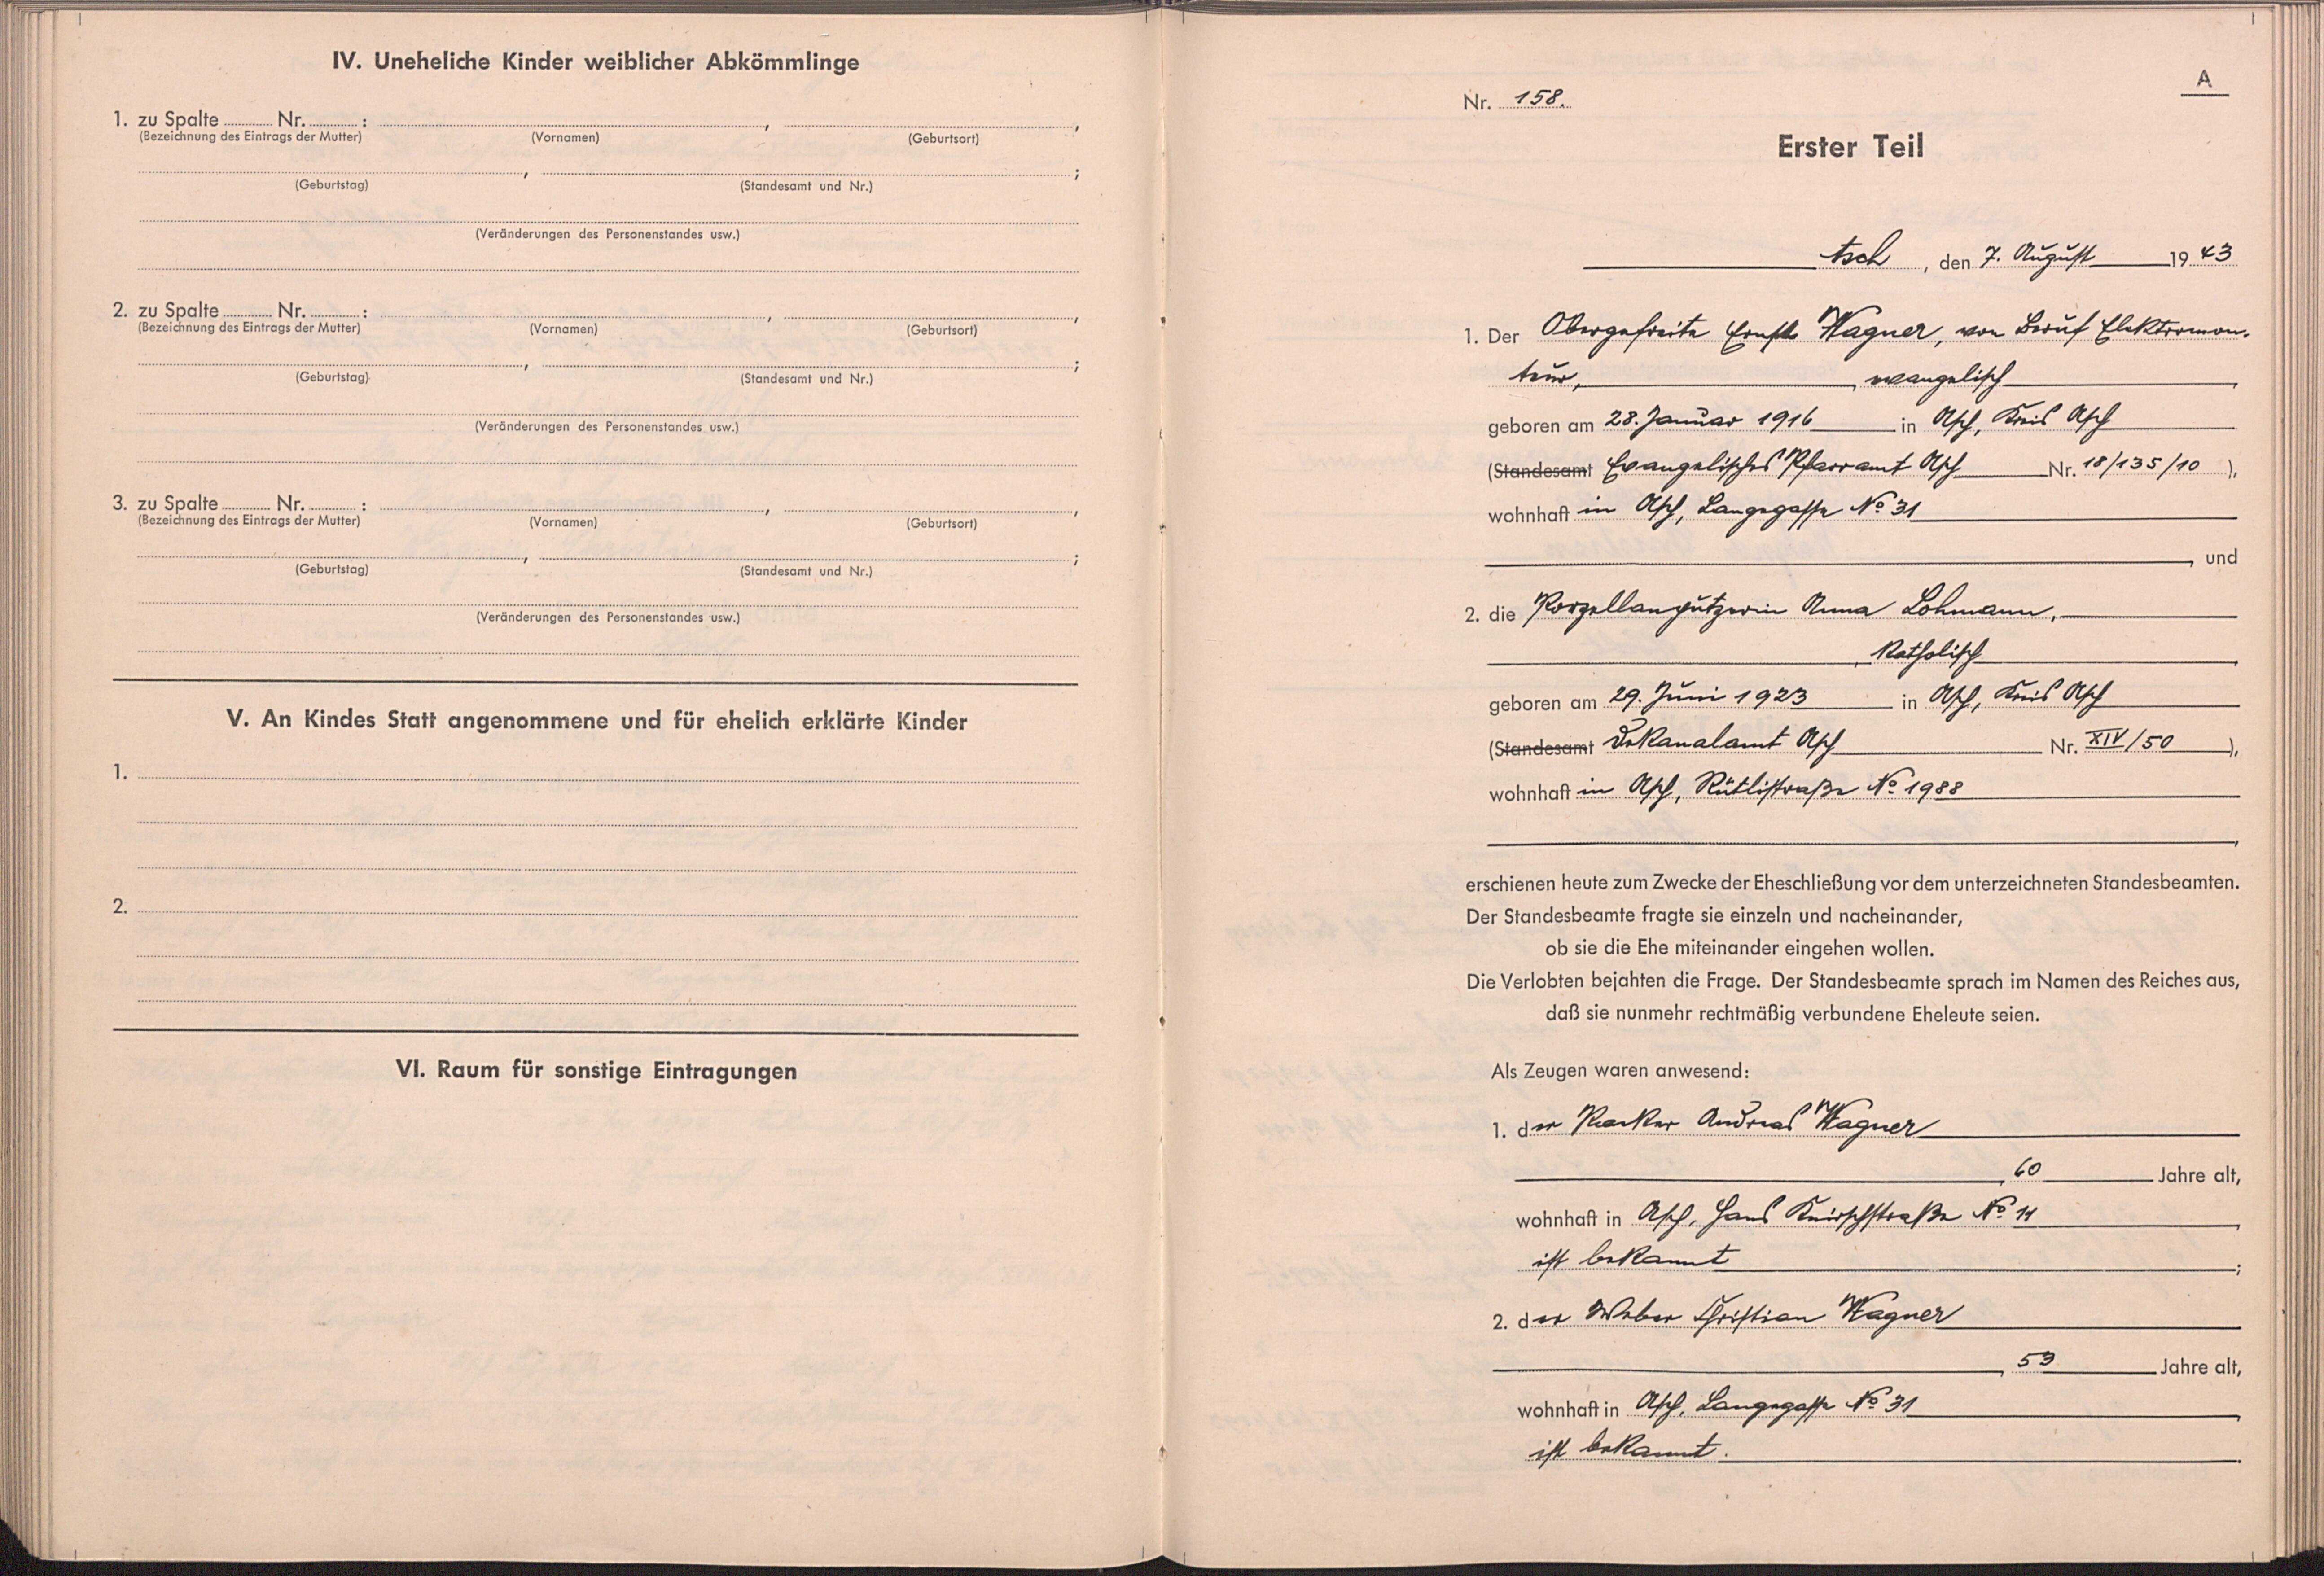 IV. Uneheliche Kinder weiblicher Abkömmlinge
1. zu Spalte Nr. : , ,
(Bezeichnung des Eintrags der Mutter) (Vornamen) (Geburtsort)
, ;
(Geburtstag) (Standesamt und Nr.)
(Veränderungen des Personenstandes usw.)
2. zu Spalte Nr. : , ,
(Bezeichnung des Eintrags der Mutter) (Vornamen) (Geburtsort)
, ;
(Geburtstag) (Standesamt und Nr.)
(Veränderungen des Personenstandes usw.)
3. zu Spalte Nr. : , ,
(Bezeichnung des Eintrags der Mutter) (Vornamen) (Geburtsort)
, ;
(Geburtstag) (Standesamt und Nr.)
(Veränderungen des Personenstandes usw.)
V. An Kindes Statt angenommene und für ehelich erklärte Kinder
1.
2.
VI. Raum für sonstige Eintragungen
A
Nr. 158.
Erster Teil
Asch, den 7. August 1943
1. Der Obergefreite Ernst Wagner, von Beruf Elektromon-
teur, , evangelisch ,
geboren am 28. Januar 1916 in Asch, Kreis Asch
(Standesamt Evangelisches Pfarramt Asch Nr. 18/135/10 ),
wohnhaft in Asch, Langegasse No 31
, und
2. die Porzellanputzerin Anna Lohmann,
, katholisch ,
geboren am 29. Juni 1923 in Asch, Kreis Asch
(Standesamt Dekanalamt Asch Nr. XIV/50 ),
wohnhaft in Asch, Rütlistraße No 1988
,
erschienen heute zum Zwecke der Eheschließung vor dem unterzeichneten Standesbeamten.
Der Standesbeamte fragte sie einzeln und nacheinander,
ob sie die Ehe miteinander eingehen wollen.
Die Verlobten bejahten die Frage. Der Standesbeamte sprach im Namen des Reiches aus,
daß sie nunmehr rechtmäßig verbundene Eheleute seien.
Als Zeugen waren anwesend:
1. der Andreas Wagner
, 60 Jahre alt,
wohnhaft in Asch, Hans Knirschstraße No 11 ,
ist bekannt ;
2. der Weber Christian Wagner
, 59 Jahre alt,
wohnhaft in Asch, Langegasse No 31 ,
ist bekannt .